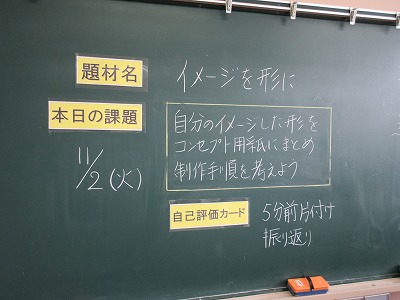 題材名 イメージを形に
本日の課題
自分のイメージした形を
コンセプト用紙にまとめ
制作手順を考えよう
11/2(火)
自己評価カード 5分前片付け
振り返り